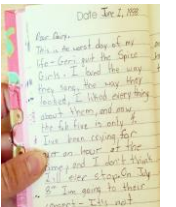 Date June 1, 1998
Dear Gary,
This is the worst day of my
life - Geri quit the Spice
Girls - I loved the way
they sang, the way they
looked, I liked everything
about them, and now
the fab five is only 4
I've been crying for
over an hour at the
and I don't think
I'll ever stop. On July
8th I'm going to their
concert - It's not